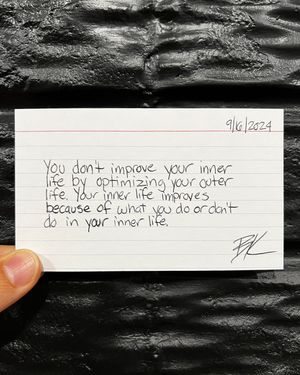 9/16/2024
You don't improve your inner
life by optimizing your outer
life. Your inner life improves
because of what you do or don't
do in your inner life.
BK